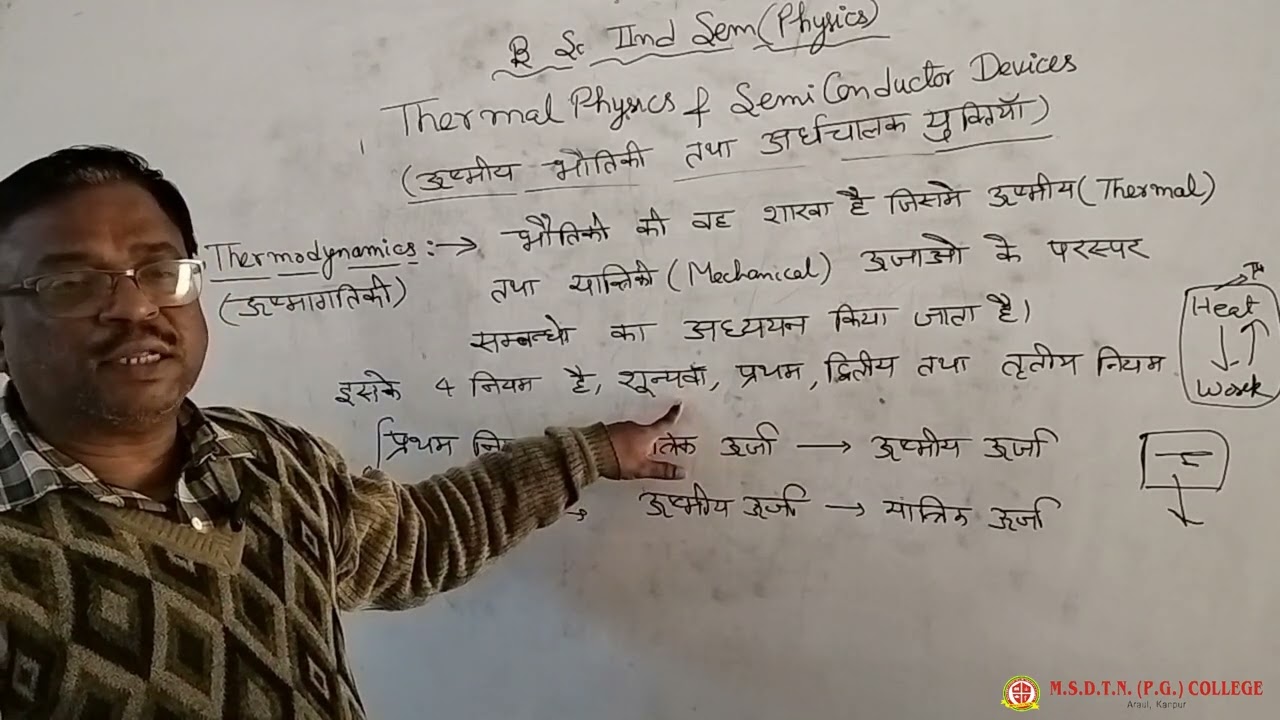 B Sc IInd Sem (Physics)
Thermal Physics & SemiConductor Devices
(ऊष्मीय भौतिकी तथा अर्धचालक युक्तियाँ)
Thermodynamics :→ भौतिकी की वह शाखा है जिसमे ऊष्मीय (Thermal)
(ऊष्मागतिकी) तथा यान्त्रिकी (Mechanical) ऊर्जाओ के परस्पर
सम्बन्धो का अध्ययन किया जाता है।
इसके 4 नियम है, शून्यवाँ, प्रथम, द्वितीय तथा तृतीय नियम
प्रथम ऊर्जा → ऊष्मीय ऊर्जा
→ ऊष्मीय ऊर्जा → यान्त्रिक ऊर्जा
Heat
↓↑
Work
M.S.D.T.N. (P.G.) COLLEGE
Araul, Kanpur